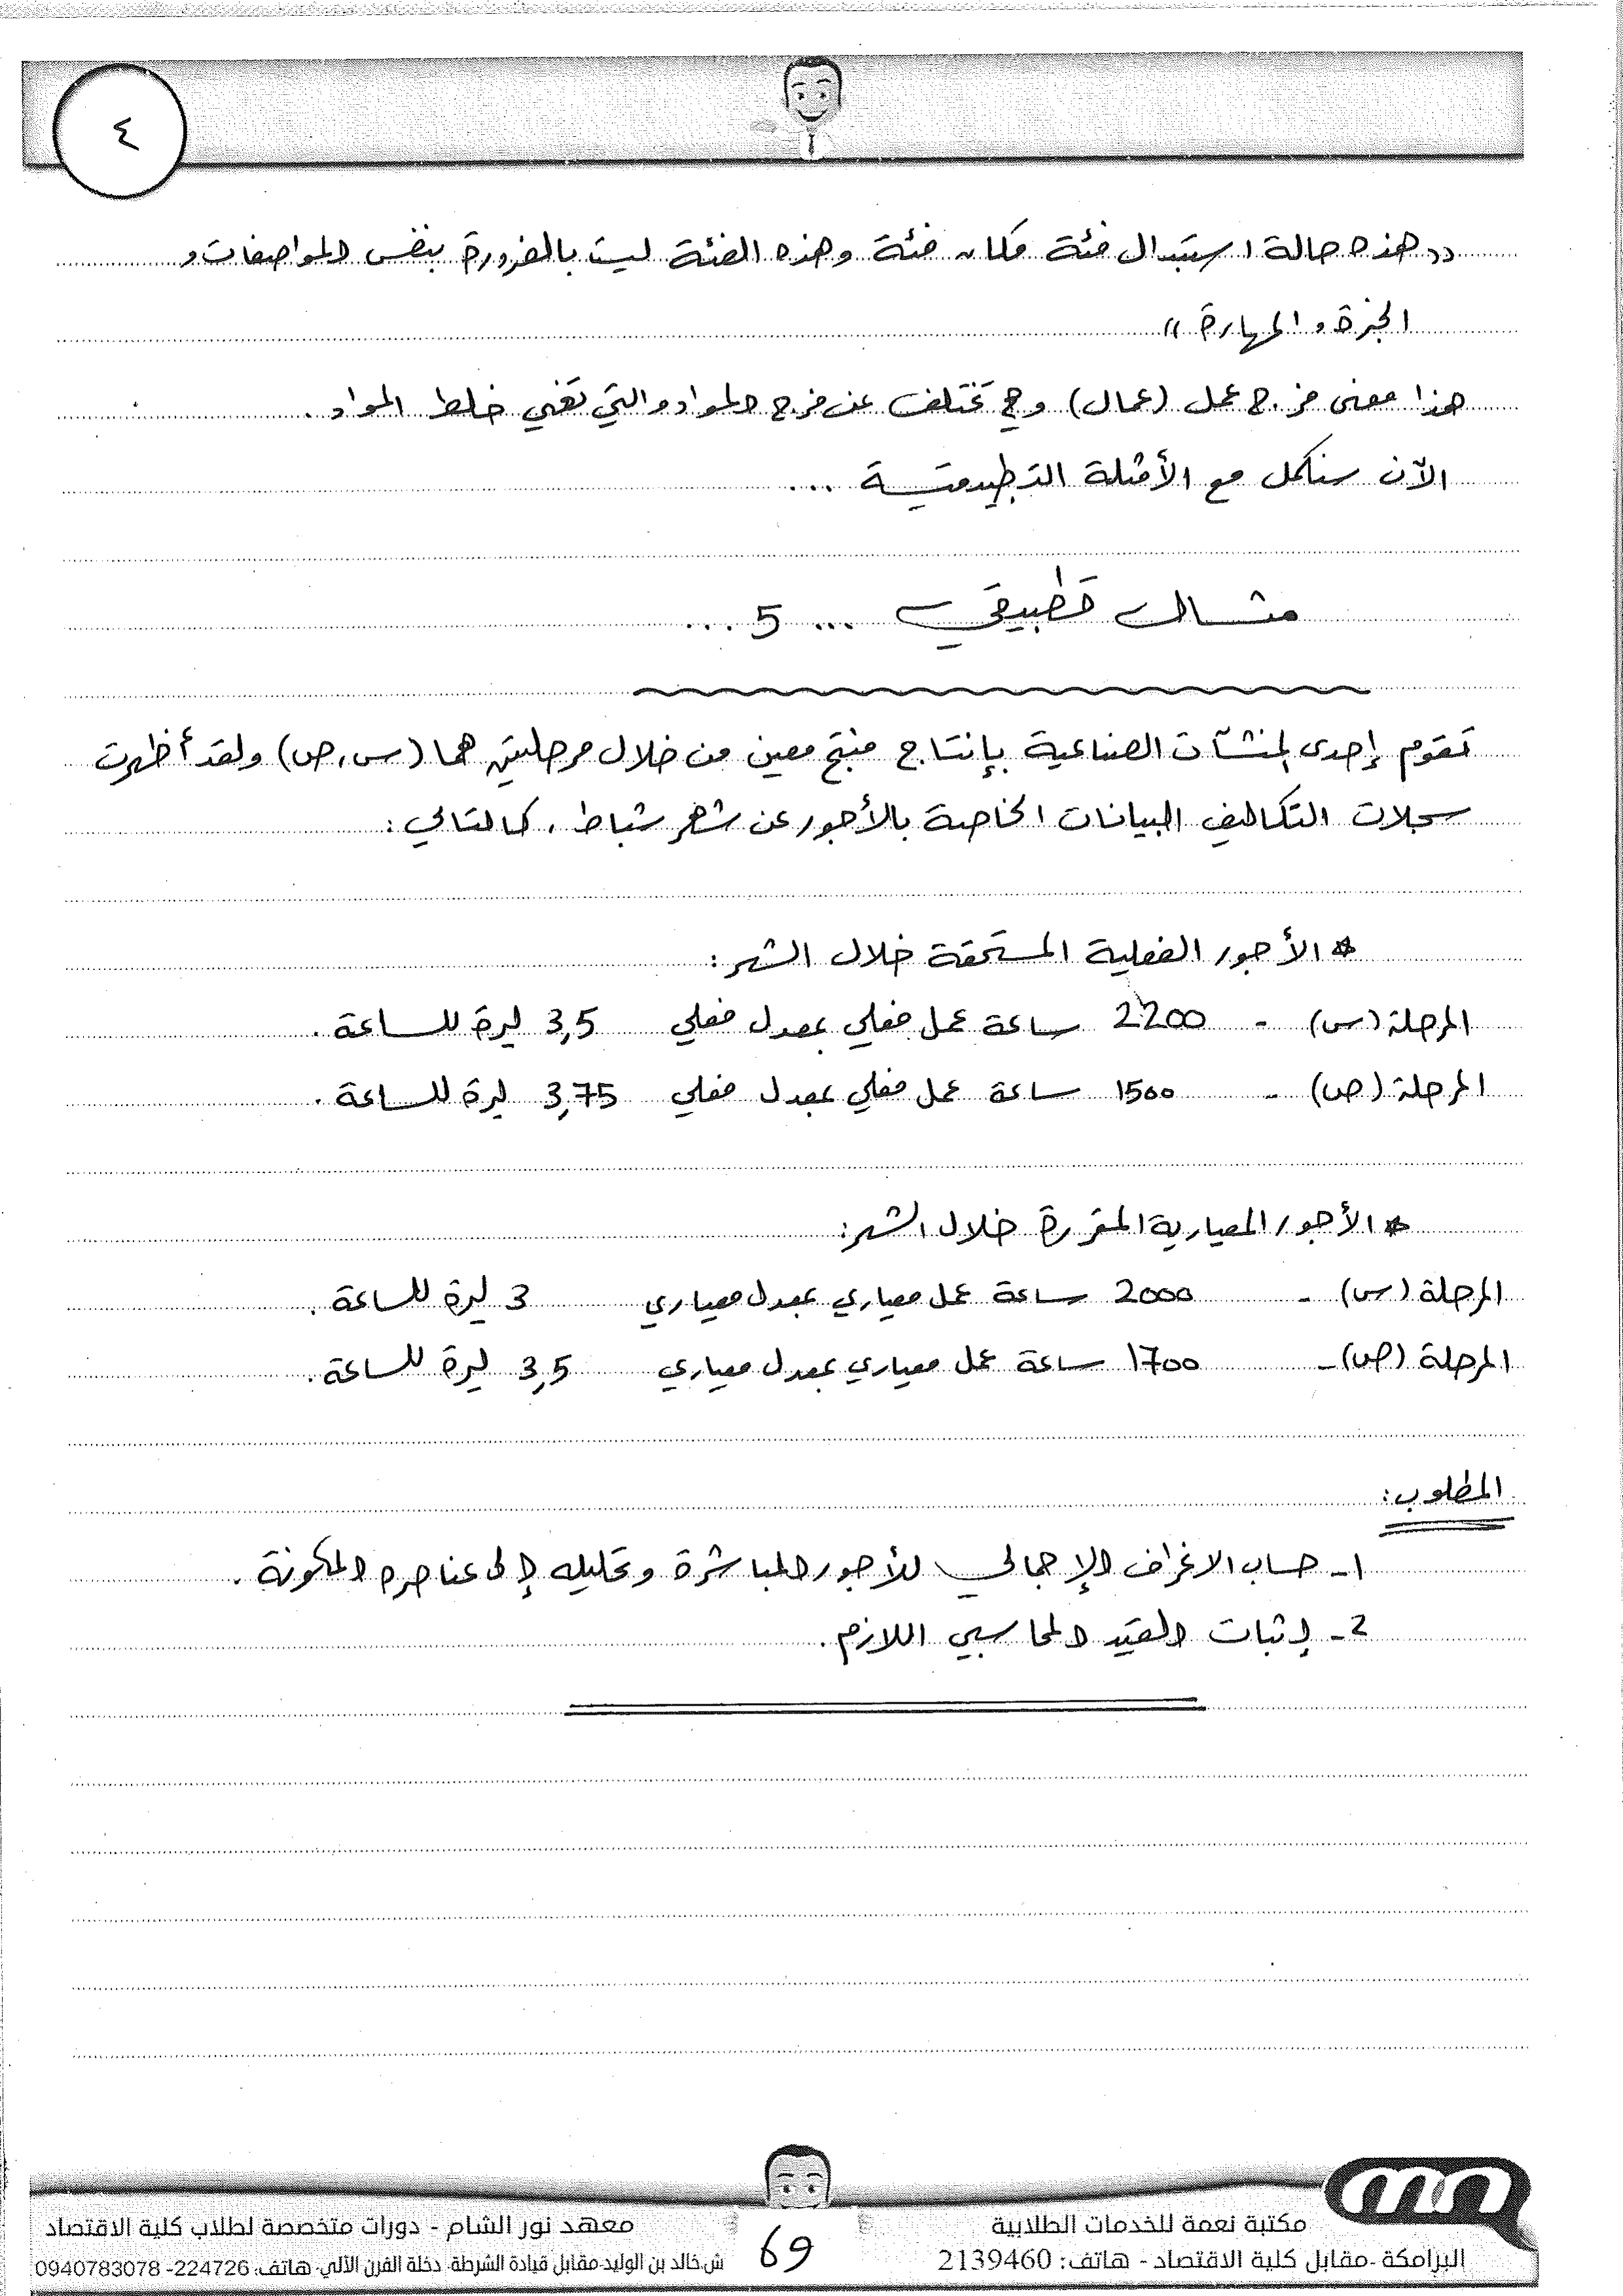 ٤
(( هذه حالة استبدال فئة مكان فئة وهذه الفئة ليست بالضرورة بنفس المواصفات و
الخبرة والمهارة ))
هذا معنى مزج عمل (عمال) وهي تختلف عن مزج المواد والتي تعني خلط المواد .
الآن سنكمل مع الأمثلة التطبيقية ...
مثال تطبيقي ... 5 ...
تقوم إحدى المنشآت الصناعية بإنتاج منتج معين من خلال مرحلتين هما (س، ص) ولقد أظهرت
سجلات التكاليف البيانات الخاصة بالأجور عن شهر شباط ، كالتالي :
* الأجور الفعلية المستحقة خلال الشهر :
المرحلة (س) - 2200 ساعة عمل فعلي بمعدل فعلي 3,5 ليرة للساعة .
المرحلة (ص) - 1500 ساعة عمل فعلي بمعدل فعلي 3,75 ليرة للساعة .
* الأجور المعيارية المقررة خلال الشهر :
المرحلة (س) - 2000 ساعة عمل معياري بمعدل معياري 3 ليرة للساعة .
المرحلة (ص) - 1700 ساعة عمل معياري بمعدل معياري 3,5 ليرة للساعة .
المطلوب :
1- حساب الانحراف الإجمالي للأجور المباشرة وتحليله إلى عناصره المكونة .
2- إثبات القيد المحاسبي اللازم .
مكتبة نعمة للخدمات الطلابية
البرامكة -مقابل كلية الاقتصاد - هاتف: 2139460
69
معهد نور الشام - دورات متخصصة لطلاب كلية الاقتصاد
ش.خالد بن الوليد-مقابل قيادة الشرطة- دخلة الفرن الآلي- هاتف: 224726- 0940783078